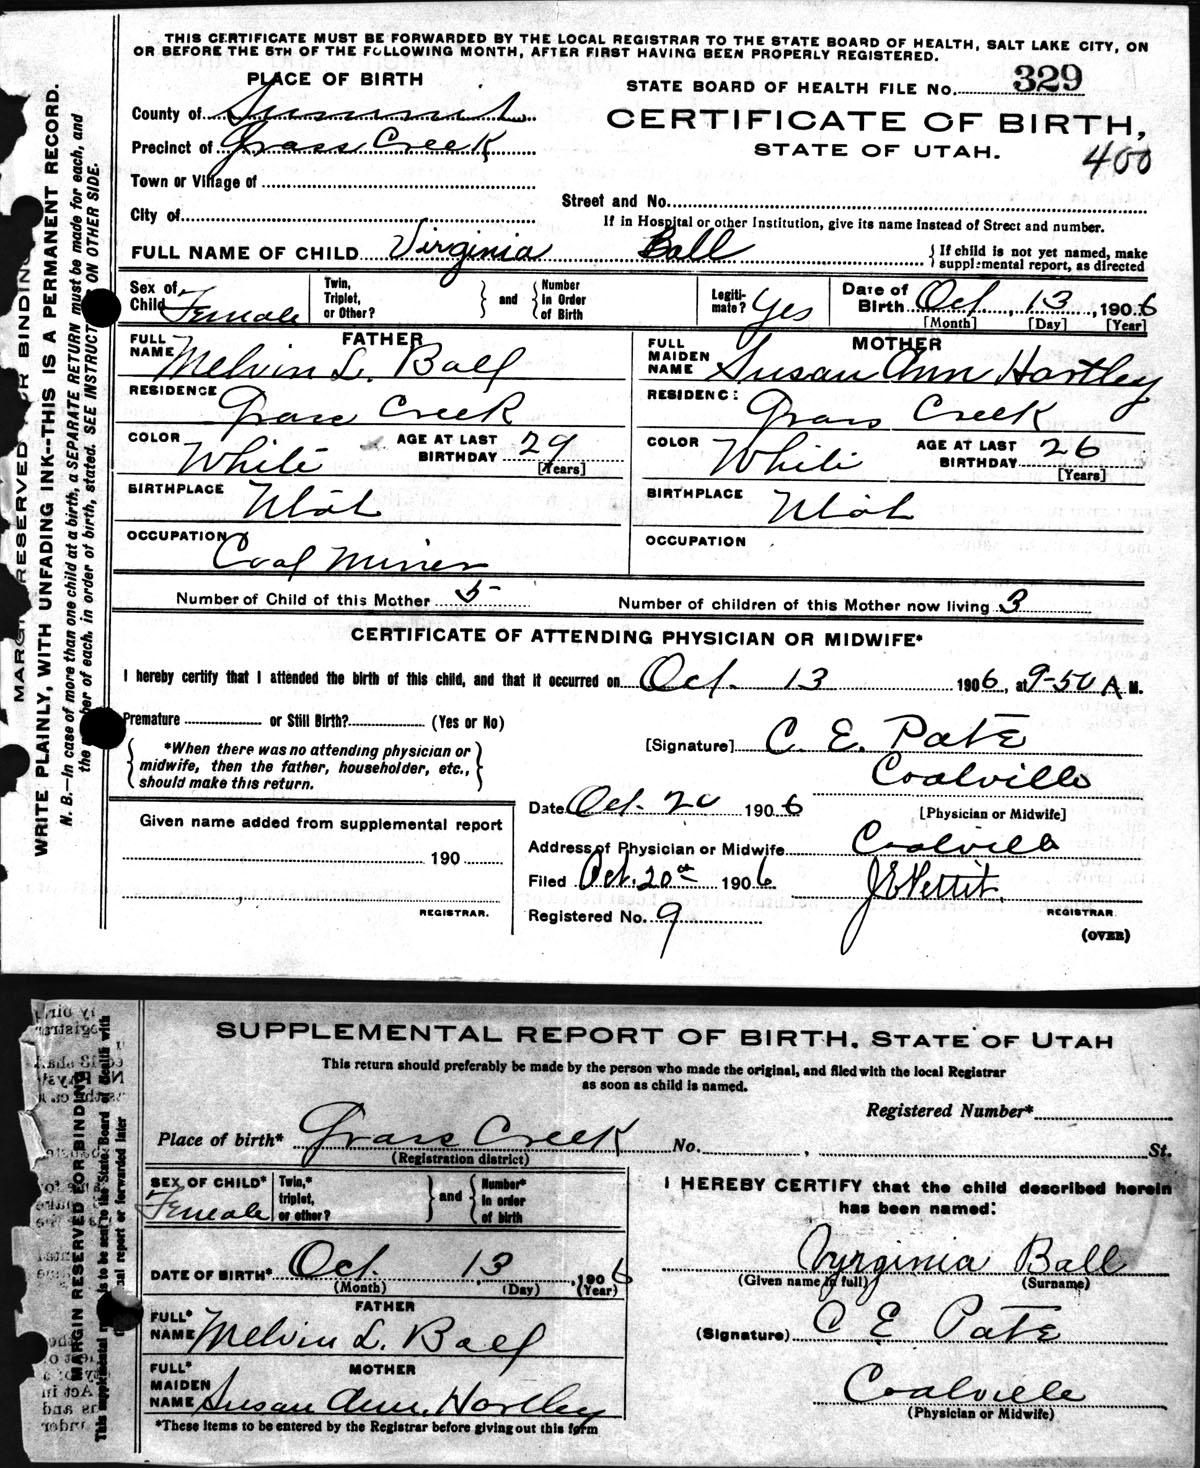 THIS CERTIFICATE MUST BE FORWARDED BY THE LOCAL REGISTRAR TO THE STATE BOARD OF HEALTH, SALT LAKE CITY, ON
OR BEFORE THE 5TH OF THE FOLLOWING MONTH, AFTER FIRST HAVING BEEN PROPERLY REGISTERED.
PLACE OF BIRTH
STATE BOARD OF HEALTH FILE No. 329
County of Summit
CERTIFICATE OF BIRTH,
Precinct of Grass Creek
STATE OF UTAH.
400
Town or Village of
Street and No.
City of
If in Hospital or other Institution, give its name instead of Street and number.
FULL NAME OF CHILD Virginia Ball { If child is not yet named, make supplemental report, as directed
Sex of Child Female Twin, Triplet, or Other? } and { Number in Order of Birth Legitimate? Yes Date of Birth Oct, 13, 1906
[Month] [Day] [Year]
FATHER
FULL NAME Melvin L. Ball
RESIDENCE Grass Creek
COLOR White AGE AT LAST BIRTHDAY 29 [Years]
BIRTHPLACE Utah
OCCUPATION Coal Miner
MOTHER
FULL MAIDEN NAME Susan Ann Hartley
RESIDENC: Grass Creek
COLOR White AGE AT LAST BIRTHDAY 26 [Years]
BIRTHPLACE Utah
OCCUPATION
Number of Child of this Mother 5 Number of children of this Mother now living 3
CERTIFICATE OF ATTENDING PHYSICIAN OR MIDWIFE*
I hereby certify that I attended the birth of this child, and that it occurred on Oct. 13 1906, at 9-50 A M.
Premature or Still Birth? (Yes or No)
{ *When there was no attending physician or midwife, then the father, householder, etc., should make this return. }
[Signature] C. E. Pate
Coalville
[Physician or Midwife]
Date Oct. 20 1906
Given name added from supplemental report
190
REGISTRAR.
Address of Physician or Midwife Coalville
Filed Oct. 20th 1906 J E Pettit.
REGISTRAR
Registered No. 9
(OVER)
MARGIN RESERVED FOR BINDING
WRITE PLAINLY, WITH UNFADING INK--THIS IS A PERMANENT RECORD.
N. B.—In case of more than one child at a birth, a SEPARATE RETURN must be made for each, and
the number of each, in order of birth, stated. SEE INSTRUCTIONS ON OTHER SIDE.
SUPPLEMENTAL REPORT OF BIRTH, STATE OF UTAH
This return should preferably be made by the person who made the original, and filed with the local Registrar
as soon as child is named.
Registered Number*
Place of birth* Grass Creek No. , St.
(Registration district)
SEX OF CHILD* Female Twin,* triplet, or other? } and { Number* in order of birth
DATE OF BIRTH* Oct. 13, 1906
(Month) (Day) (Year)
FATHER
FULL* NAME Melvin L. Ball
MOTHER
FULL* MAIDEN NAME Susan Ann Hartley
*These items to be entered by the Registrar before giving out this form
I HEREBY CERTIFY that the child described herein
has been named:
Vyrginia Ball
(Given name in full) (Surname)
(Signature) C E Pate
Coalville
(Physician or Midwife)
MARGIN RESERVED FOR BINDING
is to be sent to the State Board of Health with
report or forwarded later